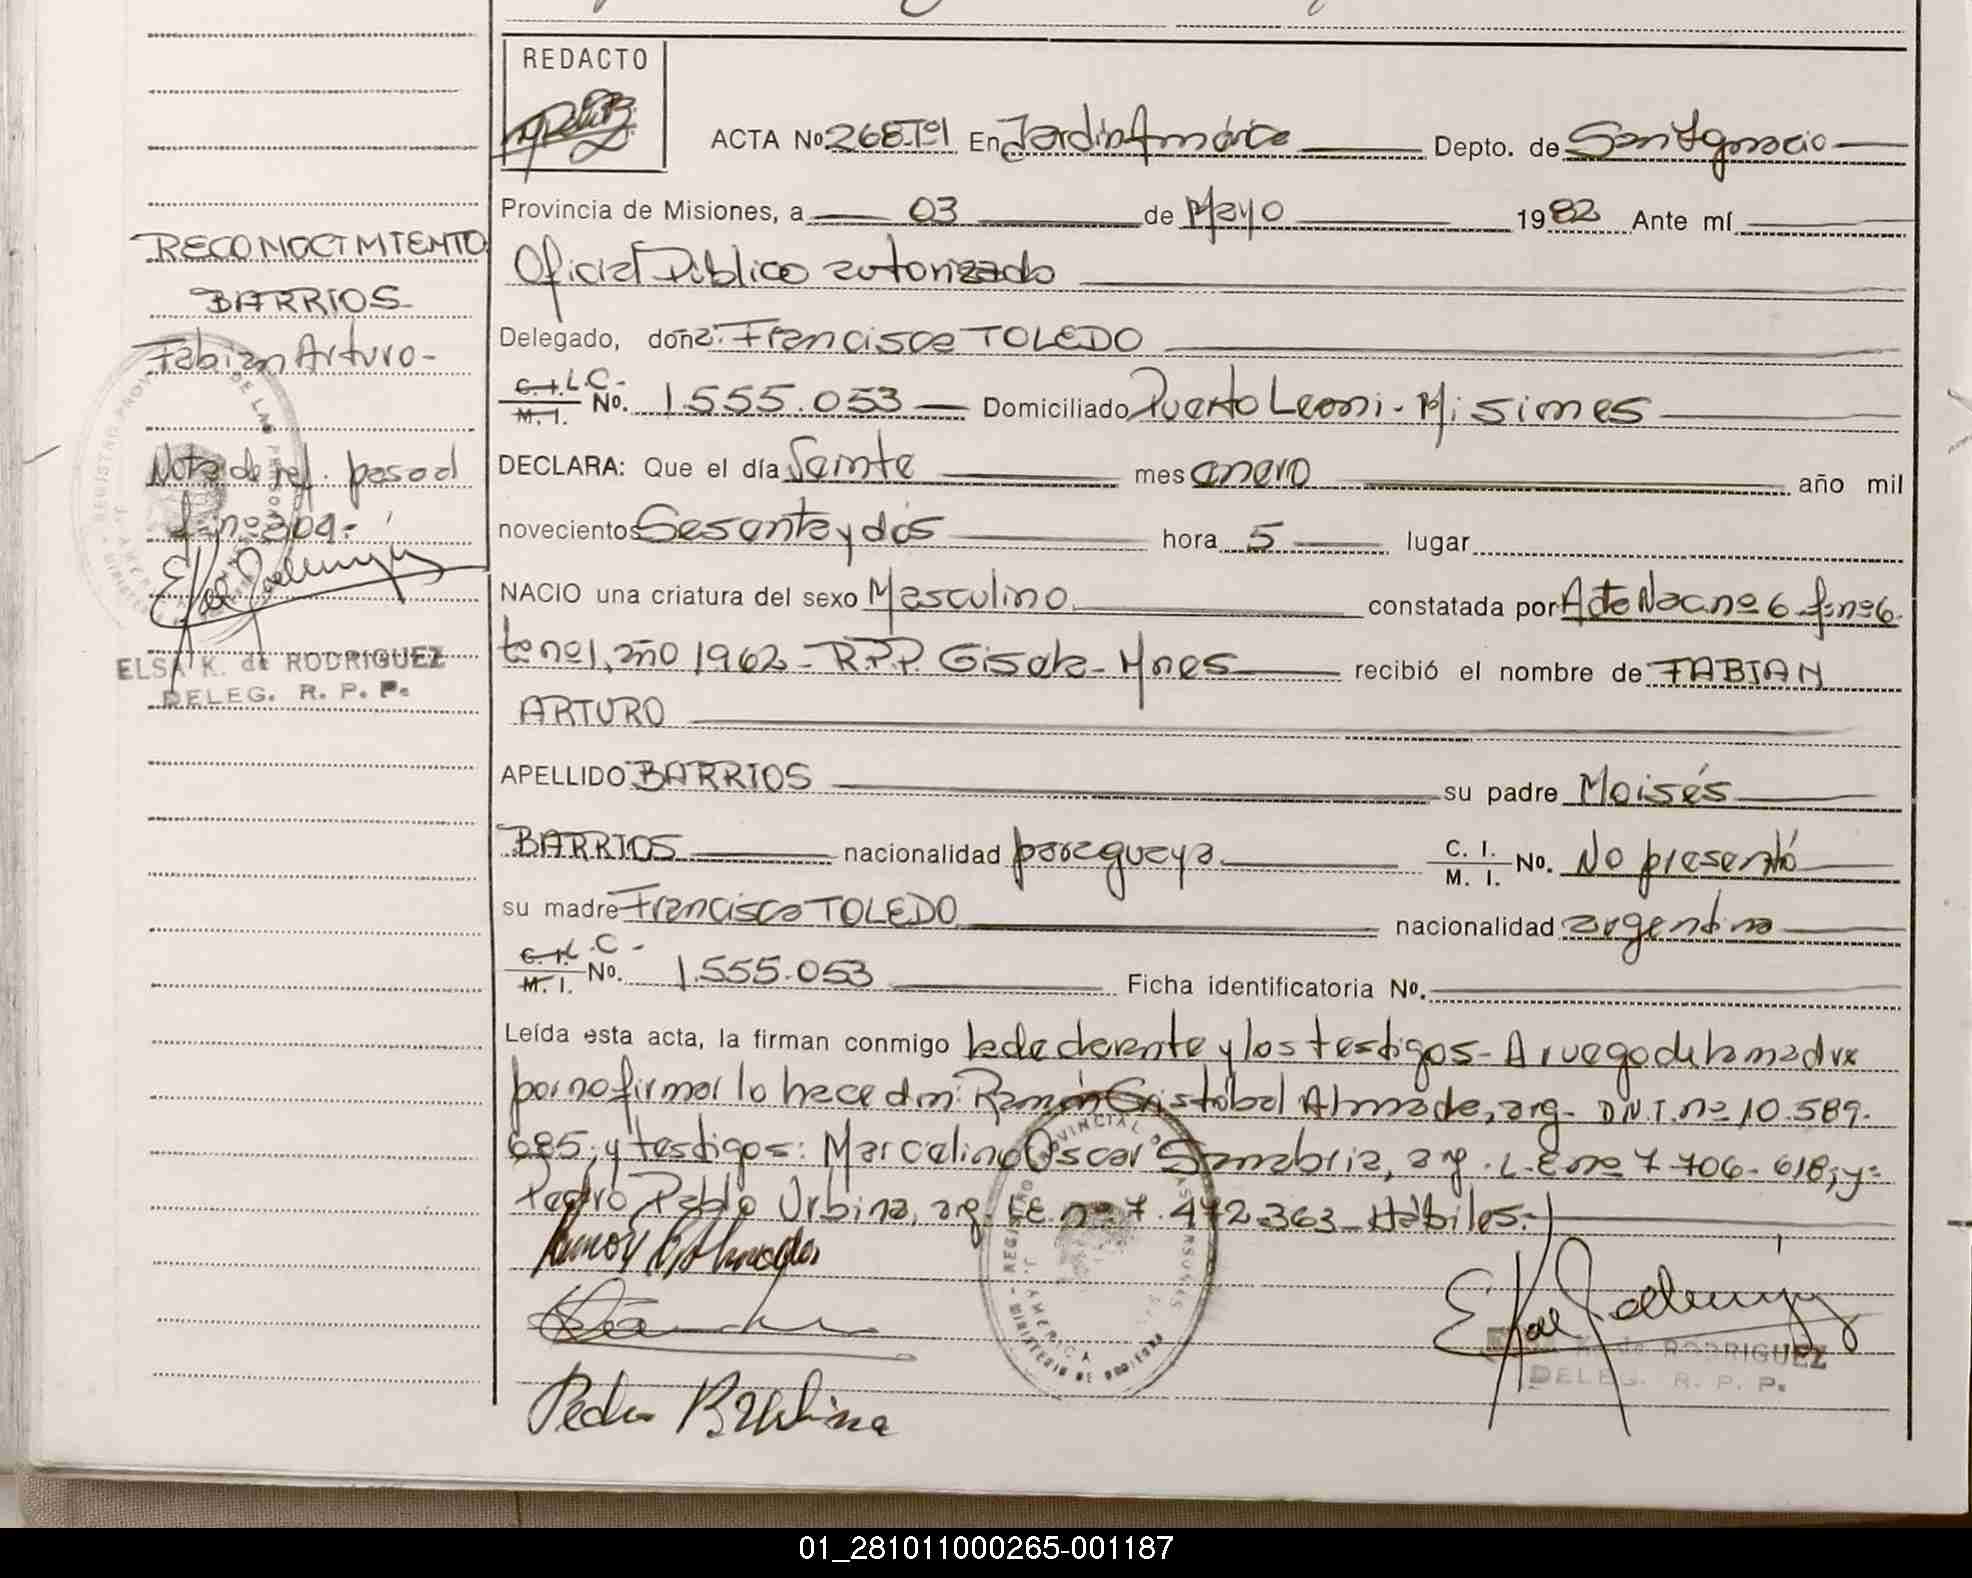 REDACTO
ACTA No 268-Tº1 En Jardín América Depto. de San Ignacio
Provincia de Misiones, a 03 de Mayo 1982 Ante mí
Oficial Público autorizado
Delegado, doña: Francisca TOLEDO
C.I. L.C.- M.I. No. 1.555.053 Domiciliado Puerto Leoni - Misiones
DECLARA: Que el día veinte mes enero año mil
novecientos Sesenta y dós hora 5 lugar
NACIO una criatura del sexo Masculino constatada por Acta Nac. nº 6 f: nº 6
to nº 1, año 1962 - R.P.P. Mnes recibió el nombre de FABIAN
ARTURO
APELLIDO BARRIOS su padre Moisés
BARRIOS nacionalidad paraguaya C. I. M. I. No. No presentó
su madre Francisca TOLEDO nacionalidad argentina
C.I. L.C.- M.I. No. 1.555.053 Ficha identificatoria No.
Leída esta acta, la firman conmigo la declarante y los testigos - A ruego de la madre
por no firmar lo hace don: Ramón Cristóbal Almada, arg - D.N.I. nº 10.589.
685; y testigos: Marcelino Oscar Sanabria, arg. L.E nº 7.706.618; y-
Pedro Pablo Urbina, arg. L.E. nº 7.472.363 - Hábiles.-
RECONOCIMIENTO
BARRIOS
Fabian Arturo-
Nota de ref. pasó al
f- nº 309-
ELSA K. de RODRIGUEZ
DELEG. R. P. P.
RODRIGUEZ
DELEG. R. P. P.
01_281011000265-001187